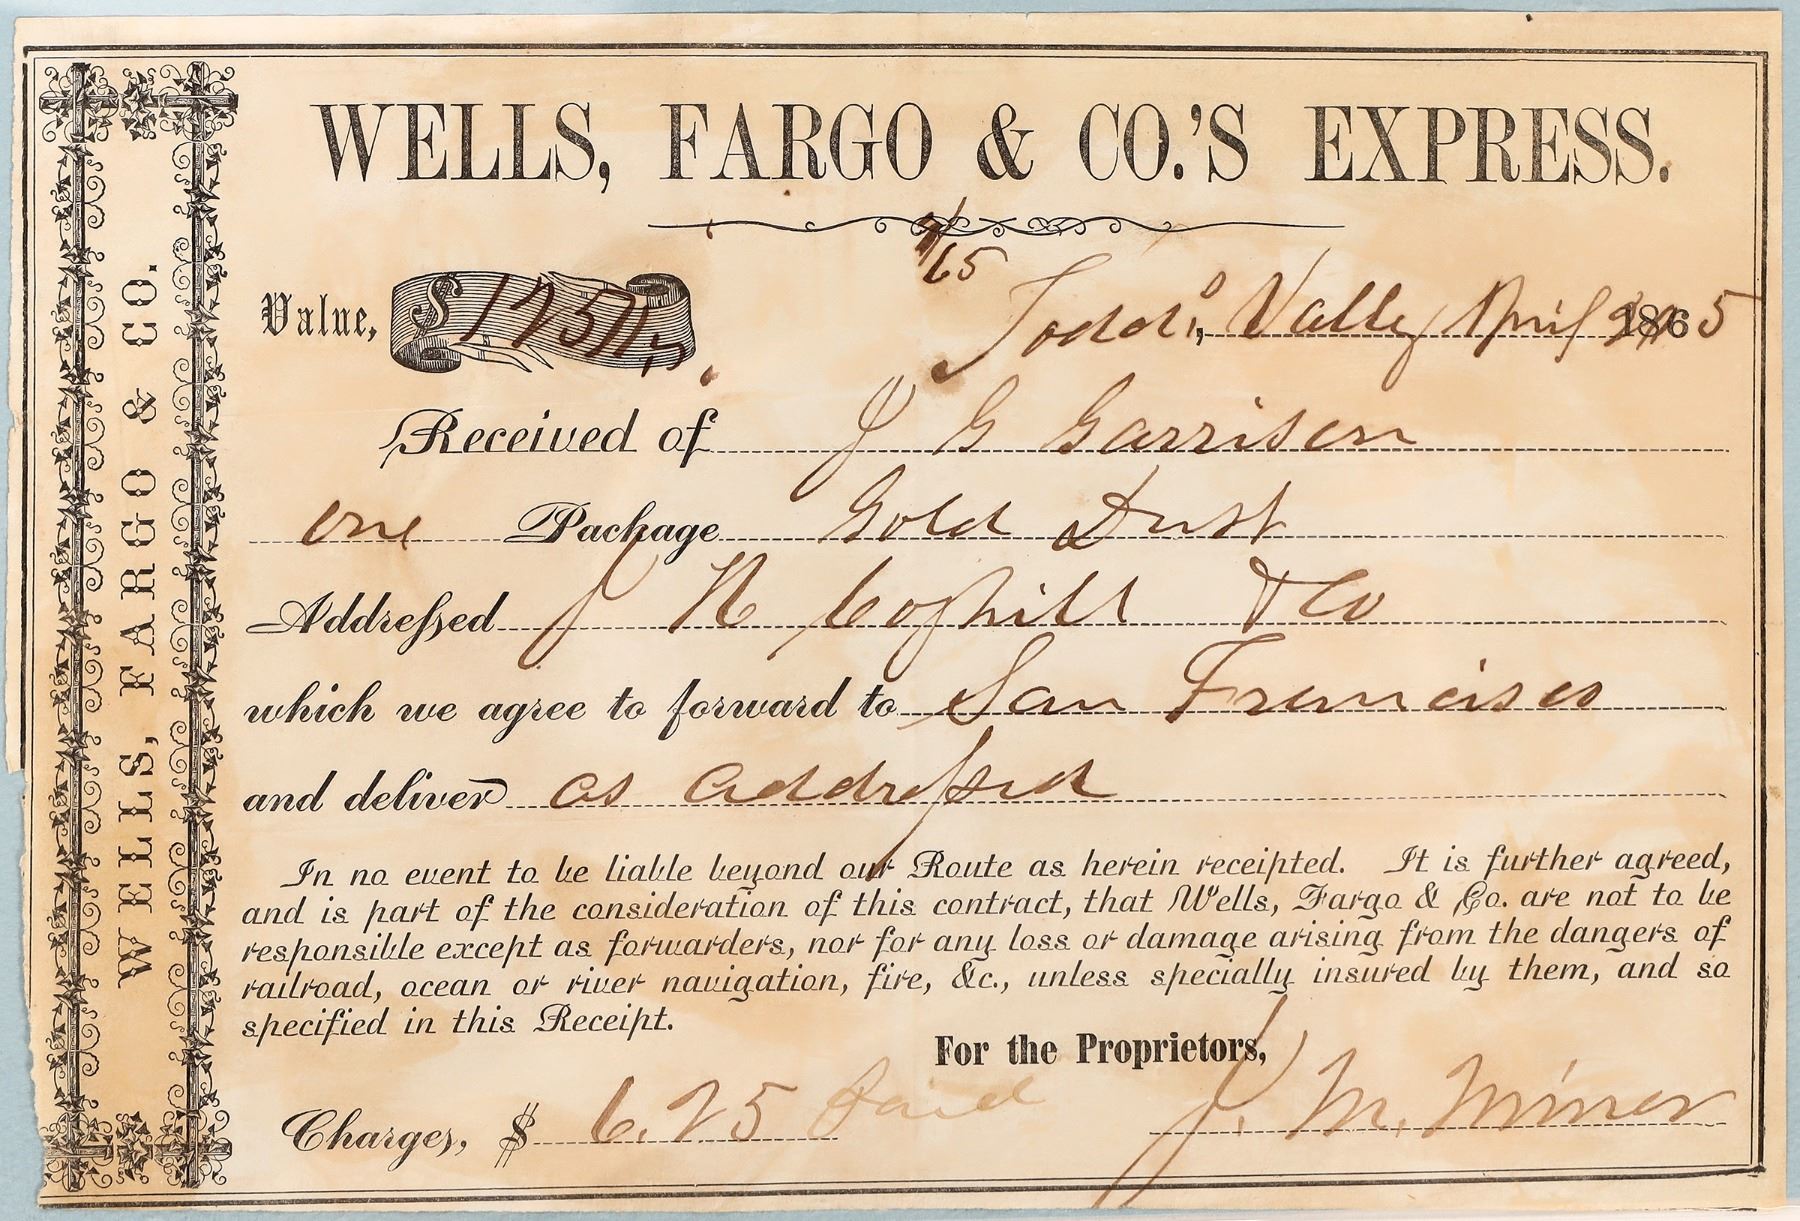 WELLS, FARGO & CO.
WELLS, FARGO & CO.'S EXPRESS.
Value, $1250
65
Todd's Valley April 1865
Received of J G Garrison
one Package Gold Dust
Addressed J H Coghill & Co
which we agree to forward to San Francisco
and deliver as addressed
In no event to be liable beyond our Route as herein receipted. It is further agreed,
and is part of the consideration of this contract, that Wells, Fargo & Co. are not to be
responsible except as forwarders, nor for any loss or damage arising from the dangers of
railroad, ocean or river navigation, fire, &c., unless specially insured by them, and so
specified in this Receipt.
For the Proprietors,
Charges, $ 6.25 Paid J. M. Miner